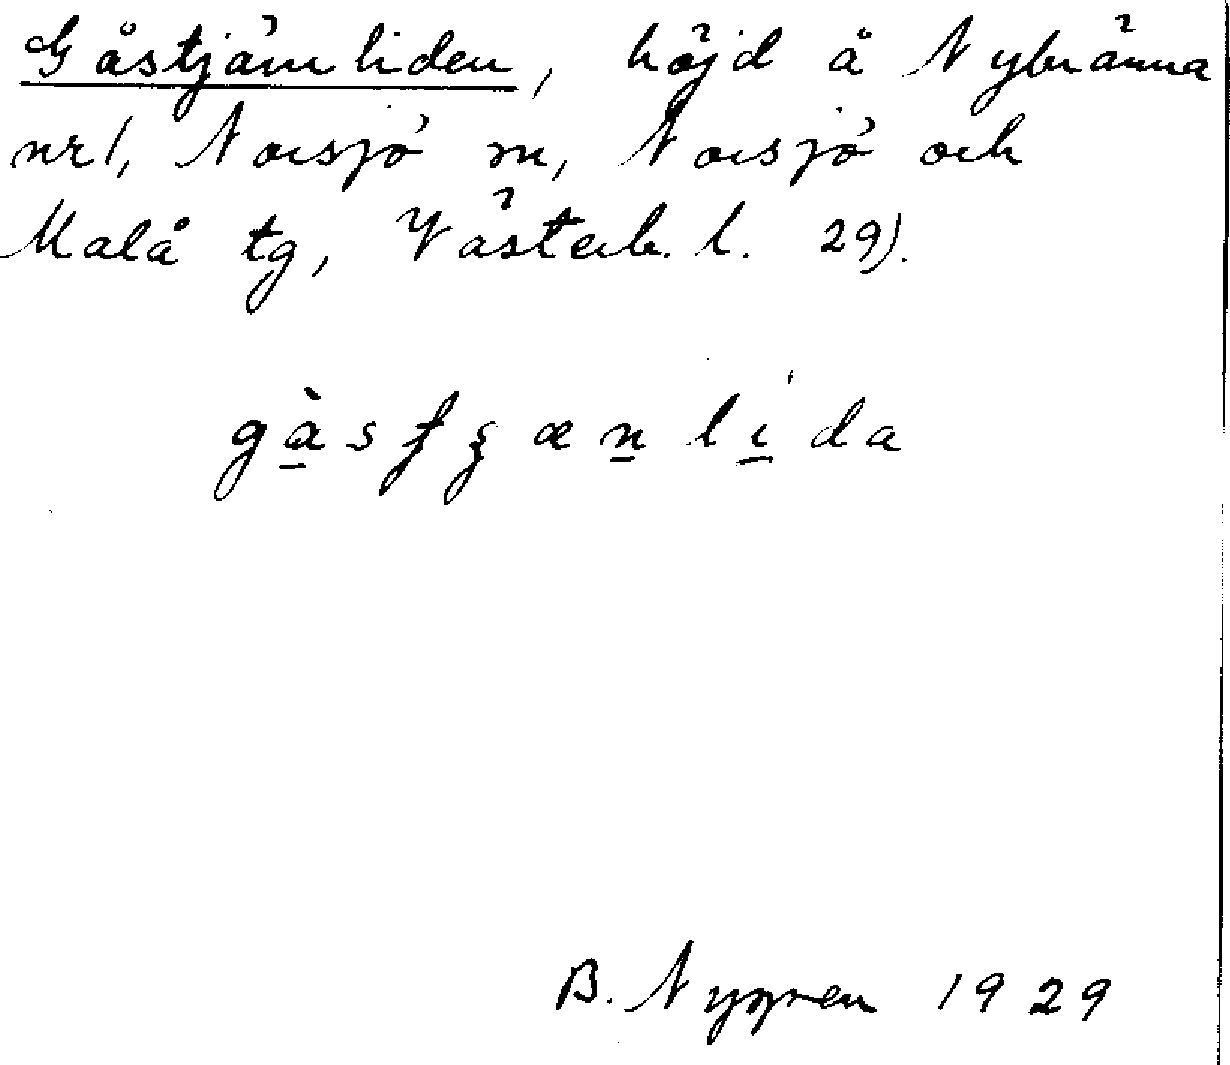 Gåstjärnliden, höjd å Nybränna
nr 1, Norsjö sn, Norsjö och
Malå tg, Västerb. l. 29).
gàsʃʒænlida
B. Nygren 1929